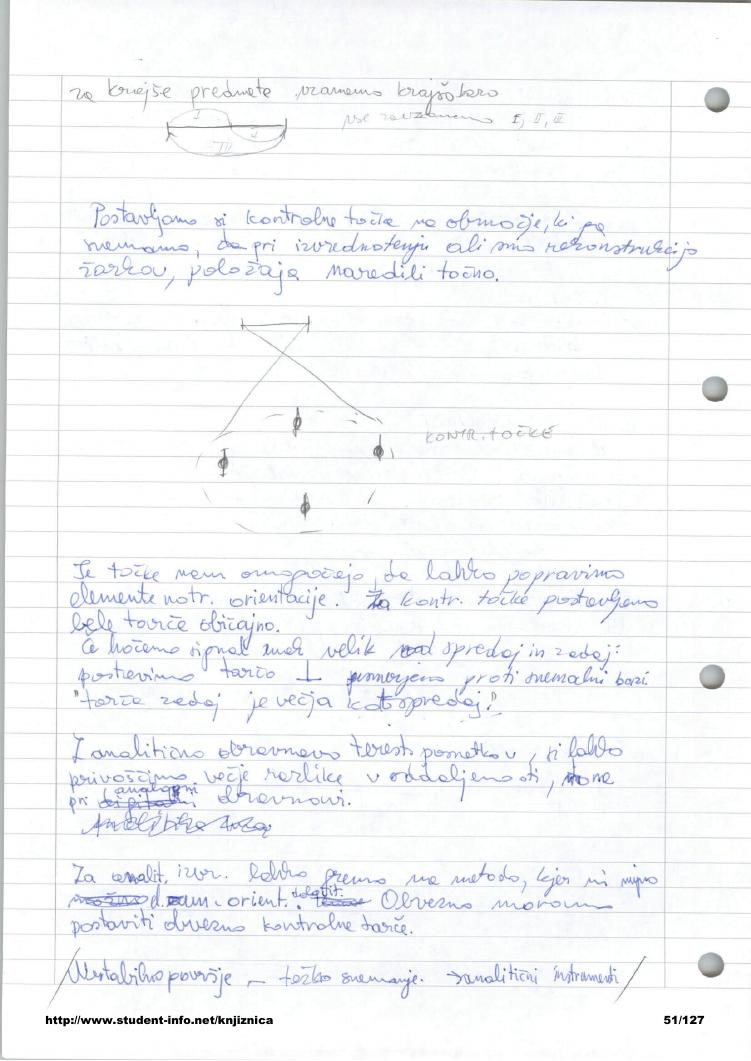 za krajše predmete vzamemo krajšo bazo
I II III
vse zavzamemo I, II, III
Postavljamo si kontrolne točke na območje, ki ga
snemamo, da pri izvrednotenju ali smo rekonstrukcijo
žarkov, položaja naredili točno.
KONTR. TOČKE
Te točke nam omogočajo, da lahko popravimo
elemente notr. orientacije. Za kontr. točke postavljamo
bele tarče običajno.
Če hočemo signal enak velik spredaj in zadaj:
postavimo tarčo ⊥ proti snemalni bazi.
"tarča zadaj je večja kot spredaj!"
Z analitično obravnavo terest. posnetkov, si lahko
privoščimo večje razlike v oddaljenosti, ne
pri analogni obravnavi.
Za analit. izvr. lahko gremo na metodo, kjer ni nujno
orient. določit. Obvezno moramo
postaviti obvezno kontrolne tarče.
/Nestabilno površje – težko snemanje. → analitični instrumenti/
http://www.student-info.net/knjiznica
51/127